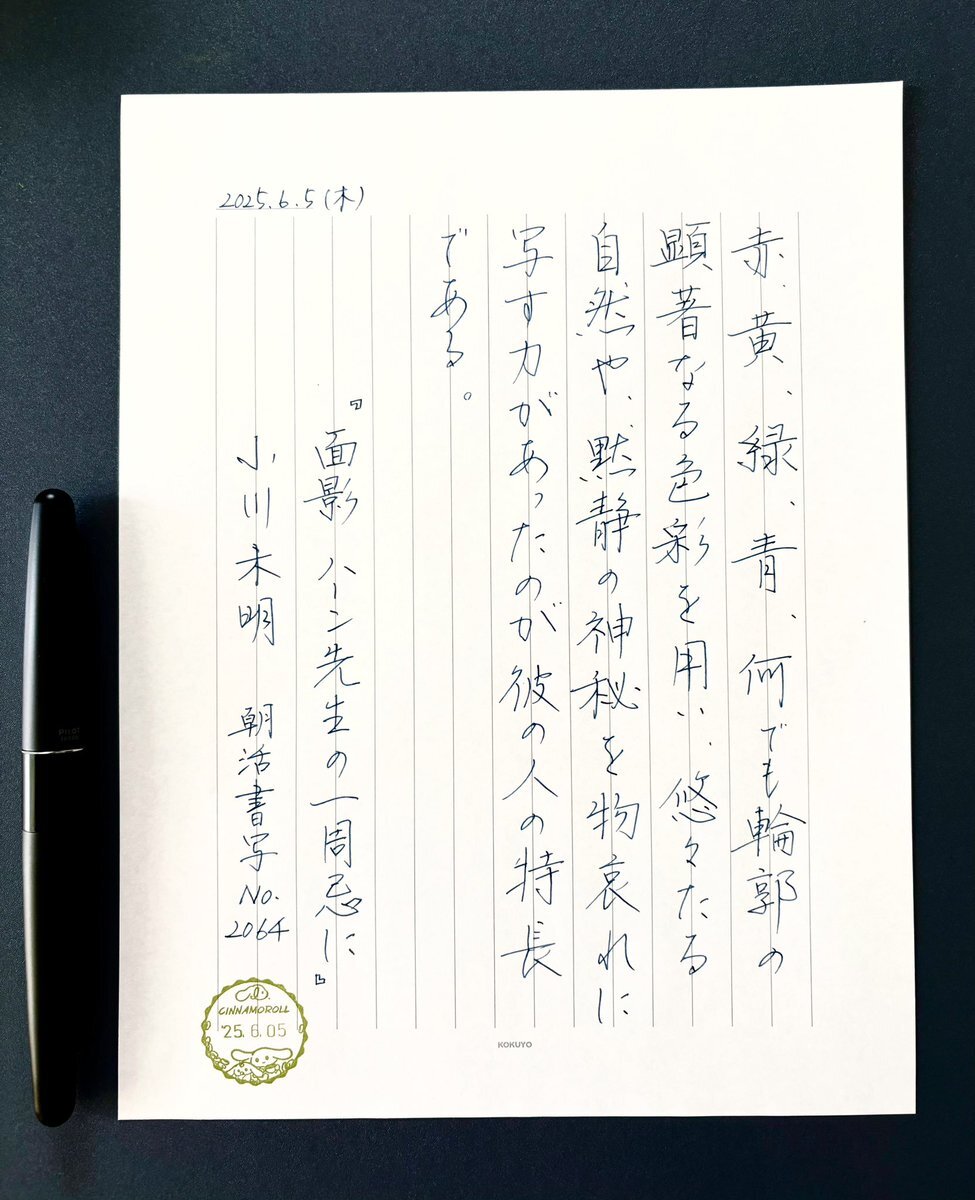 2025.6.5(木)
赤、黄、緑、青、何でも輪郭の
顕著なる色彩を用い、悠々たる
自然や、黙静の神秘を物哀れに
写す力があったのが彼の人の特長
である。
『面影 ハーン先生の一周忌に』
小川未明 朝活書写 No.2064
CINNAMOROLL
'25.6.05
KOKUYO
PILOT